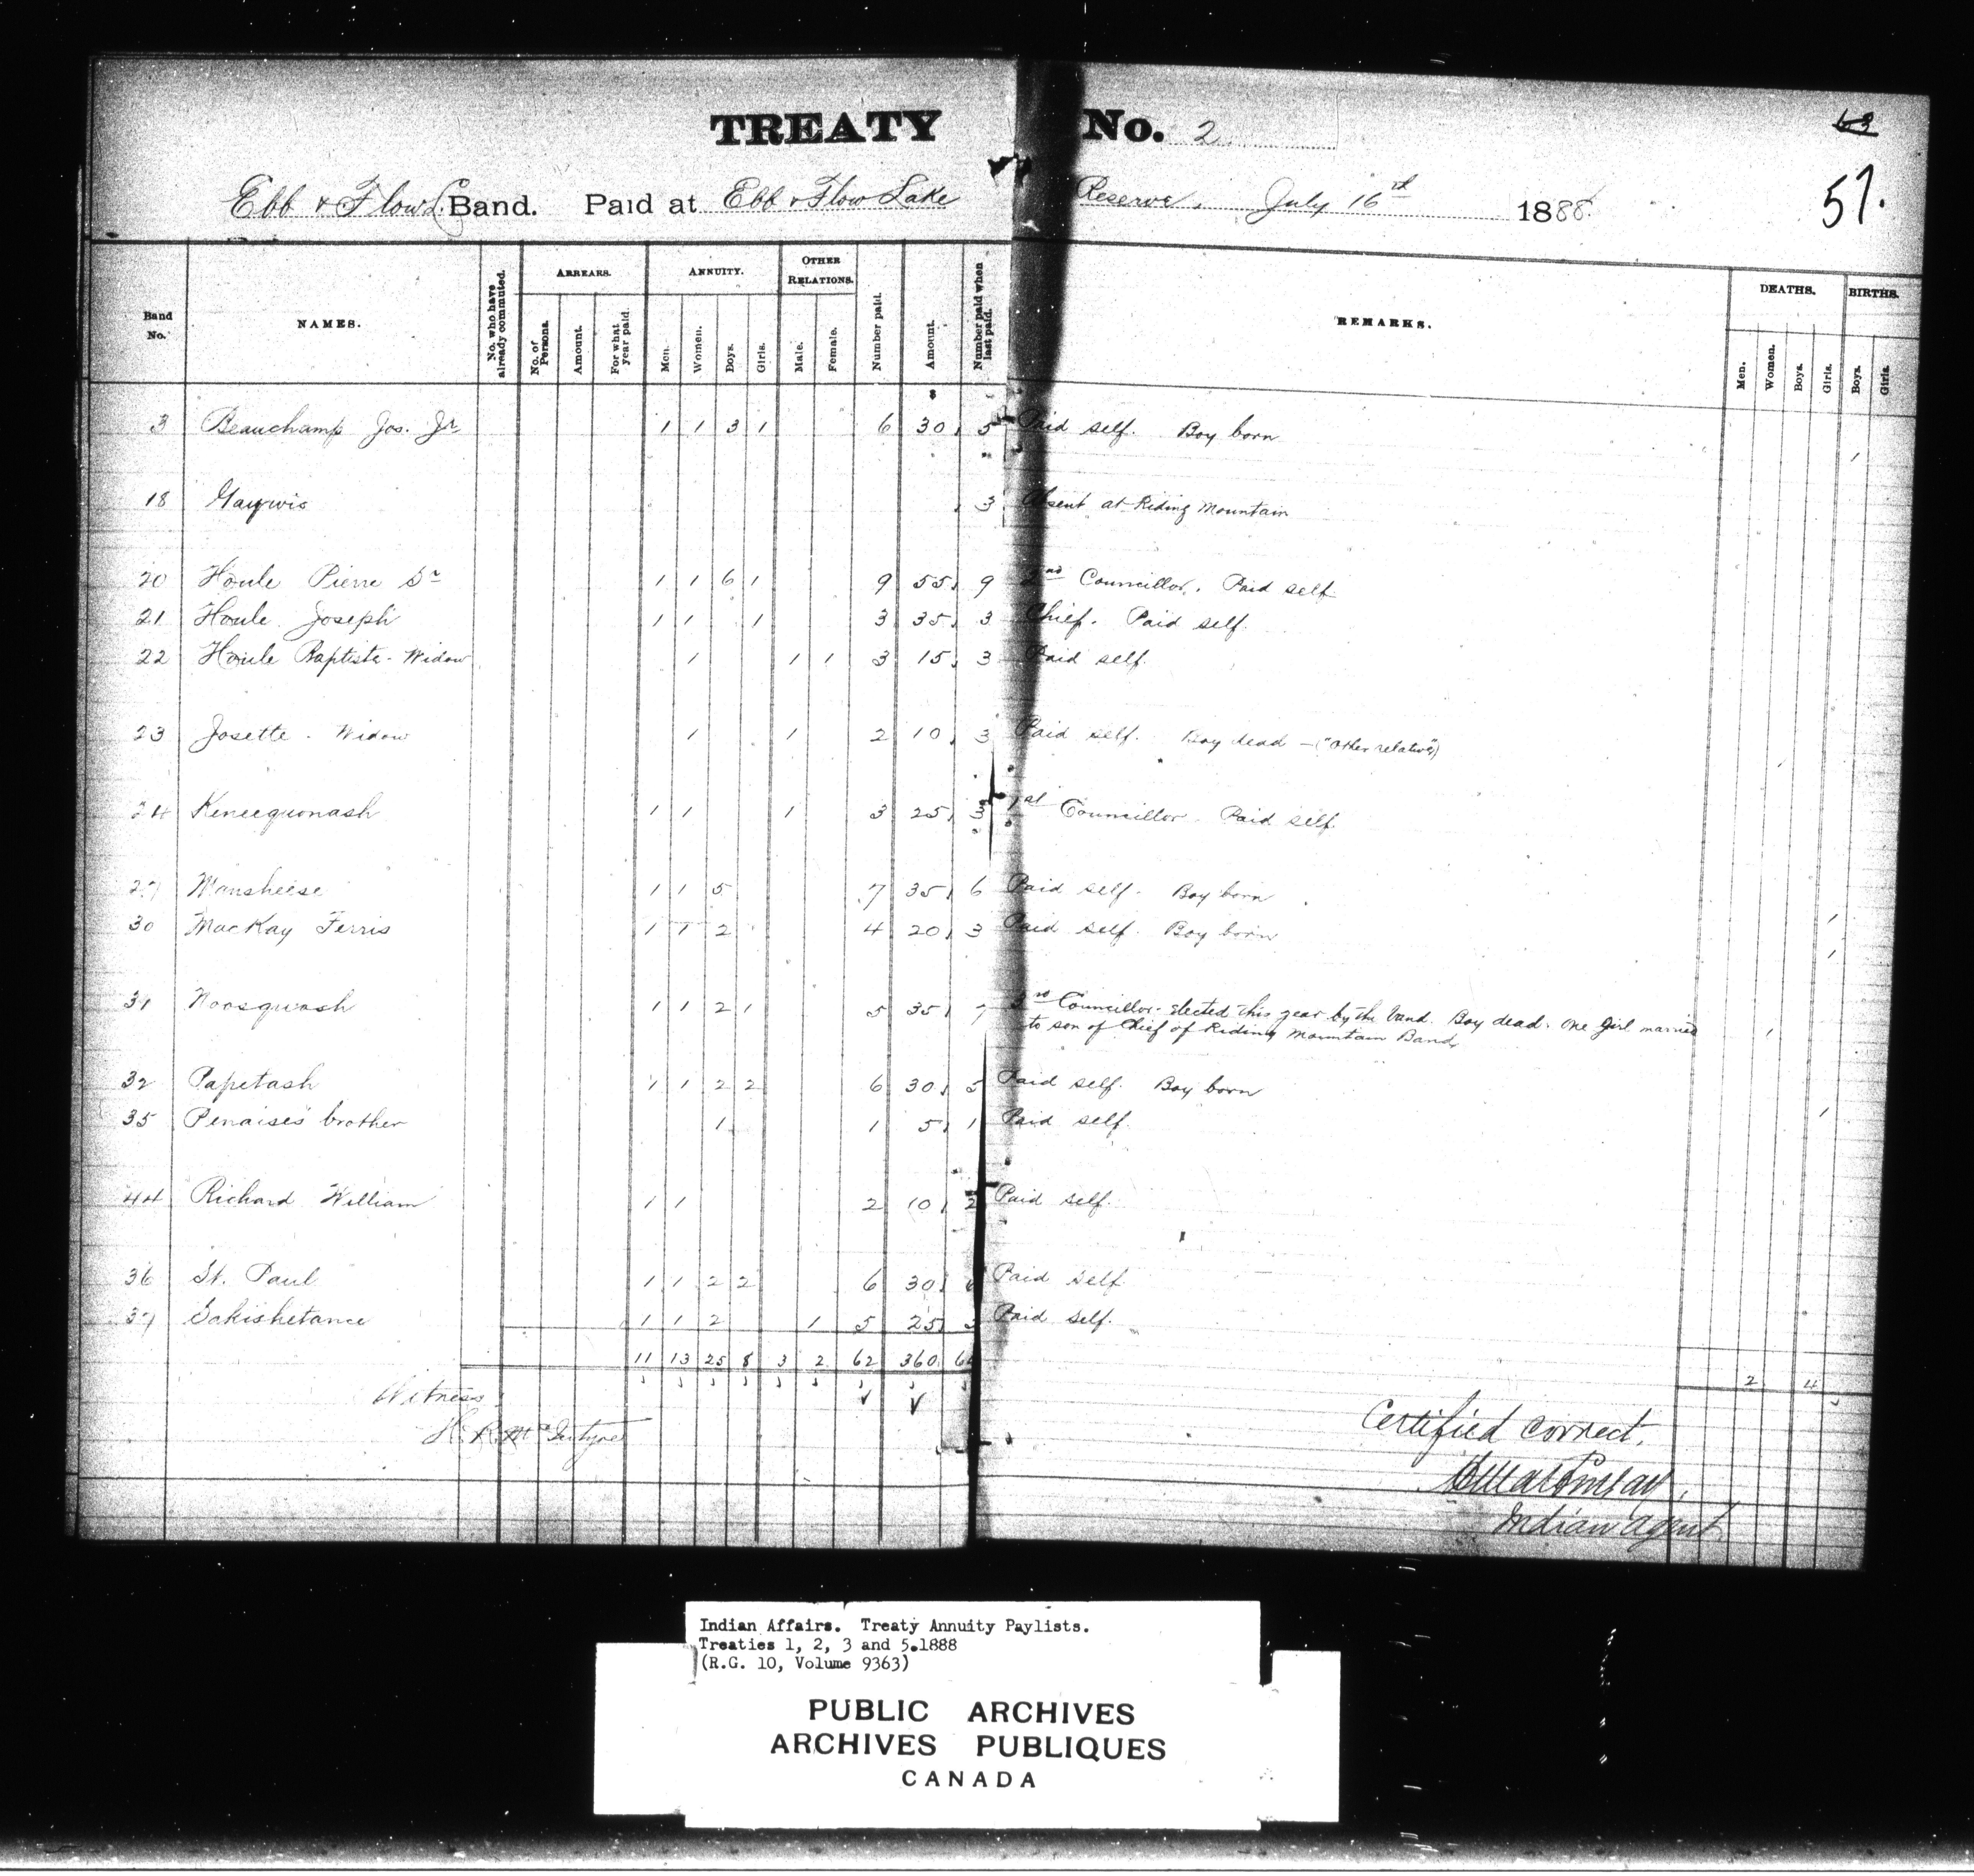 TREATY No. 2
63
51.
Ebb & Flow L. Band. Paid at Ebb & Flow Lake Reserve, July 16th 1888.
Band No. NAMES. No. who have already commuted. ARREARS. No. of Persons. Amount. For what year paid. ANNUITY. Men. Women. Boys. Girls. OTHER RELATIONS. Male. Female. Number paid. Amount. Number paid when last paid. REMARKS. DEATHS. Men. Women. Boys. Girls. BIRTHS. Boys. Girls.
$
3 Beauchamp Jos. Jr 1 1 3 1 6 30 5 Paid self. Boy born 1
18 Gaywis 3 Absent at Riding Mountain
20 Houle Pierre Sr 1 1 6 1 9 55 9 2nd Councillor. Paid self
21 Houle Joseph 1 1 1 3 35 3 Chief. Paid self.
22 Houle Baptiste - Widow 1 1 1 3 15 3 Paid self.
23 Josette - Widow 1 1 2 10 3 Paid self. Boy dead - ("other relative") 1
24 Keneequonash 1 1 1 3 25 3 1st Councillor. Paid self.
27 Mansheese 1 1 5 7 35 6 Paid self. Boy born 1
30 MacKay Ferris 1 1 2 4 20 3 Paid self. Boy born 1
31 Noosquash 1 1 2 1 5 35 7 3rd Councillor - elected this year by the band. Boy dead. One girl married 1
to son of Chief of Riding Mountain Band,
32 Papetash 1 1 2 2 6 30 5 Paid self. Boy born 1
35 Penaise's brother 1 1 5 1 Paid self.
44 Richard William 1 1 2 10 2 Paid self.
36 St. Paul 1 1 2 2 6 30 Paid self
37 Sakishetance 1 1 2 1 5 25 Paid self.
11 13 25 8 3 2 62 360 2 4
Witness
H. R. McIntyre
Certified correct.
Indian Agent
Indian Affairs. Treaty Annuity Paylists.
Treaties 1, 2, 3 and 5.1888
(R.G. 10, Volume 9363)
PUBLIC ARCHIVES
ARCHIVES PUBLIQUES
CANADA